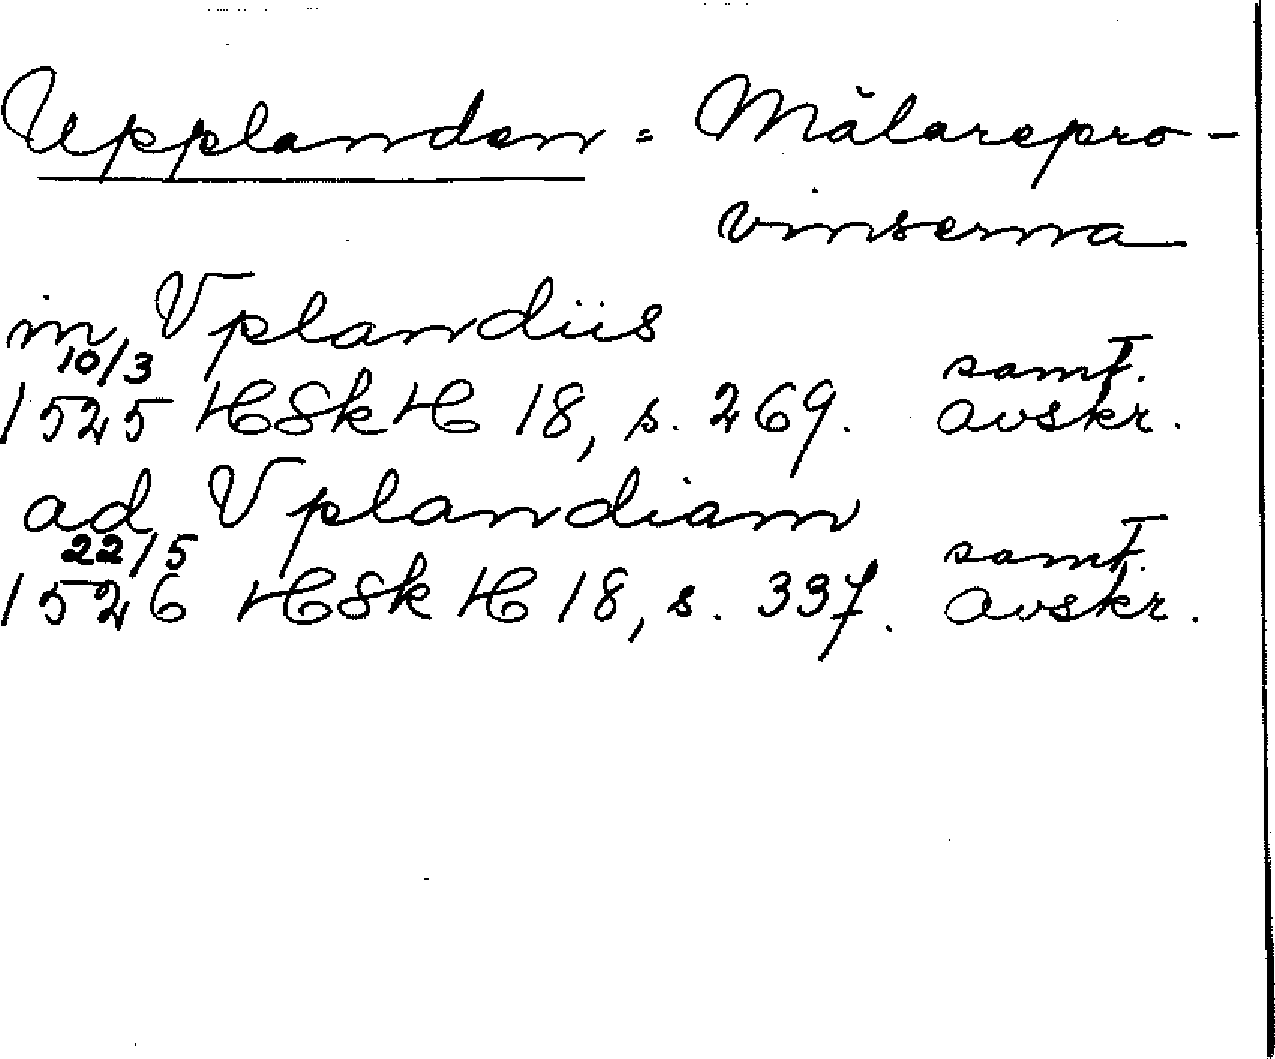 Upplanden = Mälarepro-
vinserna
in Vplandiis
10/3 samt.
1525 HSkH 18, s. 269. avskr.
ad Vplandiam
22/5 samt.
1526 HSkH 18, s. 337. avskr.